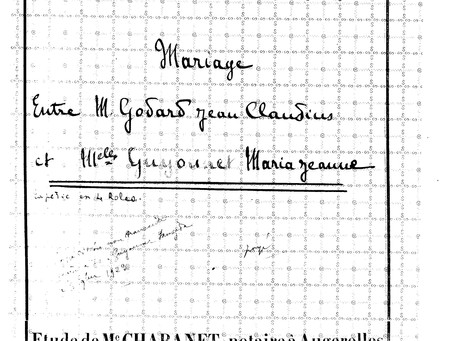 Mariage
Entre M. Godard Jean Claudius
et Melle Guyonnet Maria Jeanne
en 4 Roles.
1929
payé
Etude de Me CHABANET, notaire à Augerolles